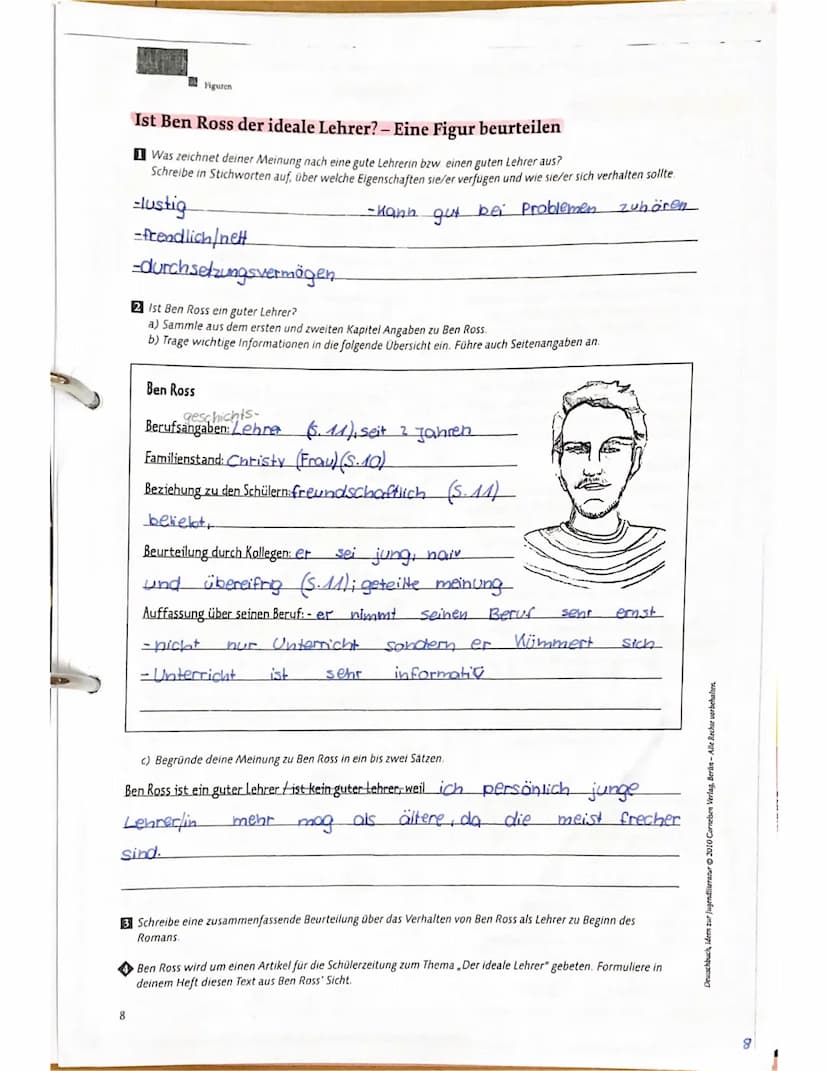 Figuren
Ist Ben Ross der ideale Lehrer? – Eine Figur beurteilen
1 Was zeichnet deiner Meinung nach eine gute Lehrerin bzw. einen guten Lehrer aus?
Schreibe in Stichworten auf, über welche Eigenschaften sie/er verfügen und wie sie/er sich verhalten sollte.
-lustig -Kann gut bei Problemen zuhören
-frendlich/nett
-durchsetzungsvermögen
2 Ist Ben Ross ein guter Lehrer?
a) Sammle aus dem ersten und zweiten Kapitel Angaben zu Ben Ross.
b) Trage wichtige Informationen in die folgende Übersicht ein. Führe auch Seitenangaben an.
Ben Ross
geschichts-
Berufsangaben: Lehrer (S. 11), seit 2 Jahren
Familienstand: Christy (Frau) (S. 10)
Beziehung zu den Schülern: freundschaftlich (S. 11)
beliebt,
Beurteilung durch Kollegen: er sei jung, naiv
und übereifrig (S. 11); geteilte meinung
Auffassung über seinen Beruf: - er nimmt seinen Beruf sehr ernst
- nicht nur Unterricht sondern er Kümmert sich
- Unterricht ist sehr informativ
c) Begründe deine Meinung zu Ben Ross in ein bis zwei Sätzen.
Ben Ross ist ein guter Lehrer / ist kein guter Lehrer, weil ich persönlich junge
Lehrer/in mehr mag als ältere, da die meist frecher
sind.
3 Schreibe eine zusammenfassende Beurteilung über das Verhalten von Ben Ross als Lehrer zu Beginn des
Romans.
4 Ben Ross wird um einen Artikel für die Schülerzeitung zum Thema „Der ideale Lehrer" gebeten. Formuliere in
deinem Heft diesen Text aus Ben Ross' Sicht.
8
Deutschbuch, Ideen zur Jugendliteratur © 2010 Cornelsen Verlag, Berlin – Alle Rechte vorbehalten.
8